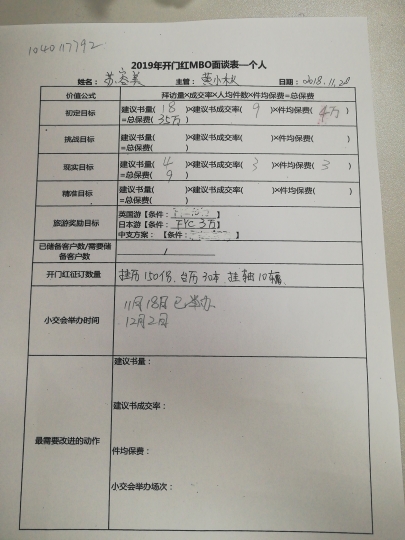 1040117792
2019年开门红MBO面谈表—个人
姓名： 苏容美 主管： 黄小秋 日期：2018.11.28
价值公式 拜访量×成交率×人均件数×件均保费=总保费
初定目标 建议书量( 18 )×建议书成交率( 9 )×件均保费( 4万 )
=总保费( 35万 )
挑战目标 建议书量( )×建议书成交率( )×件均保费( )
=总保费( )
现实目标 建议书量( 4 )×建议书成交率( 3 )×件均保费( 3 )
=总保费( 9 )
精准目标 建议书量( )×建议书成交率( )×件均保费( )
=总保费( )
旅游奖励目标 英国游【条件： 】
日本游【条件： FYC 3万 】
中支方案： 【条件： 】
已储备客户数/需要储备客户数 /
开门红征订数量 挂历150份、台历30本、挂轴10幅
小交会举办时间 11月18日已举办
12月2日
最需要改进的动作 建议书量：
建议书成交率：
件均保费：
小交会举办场次：